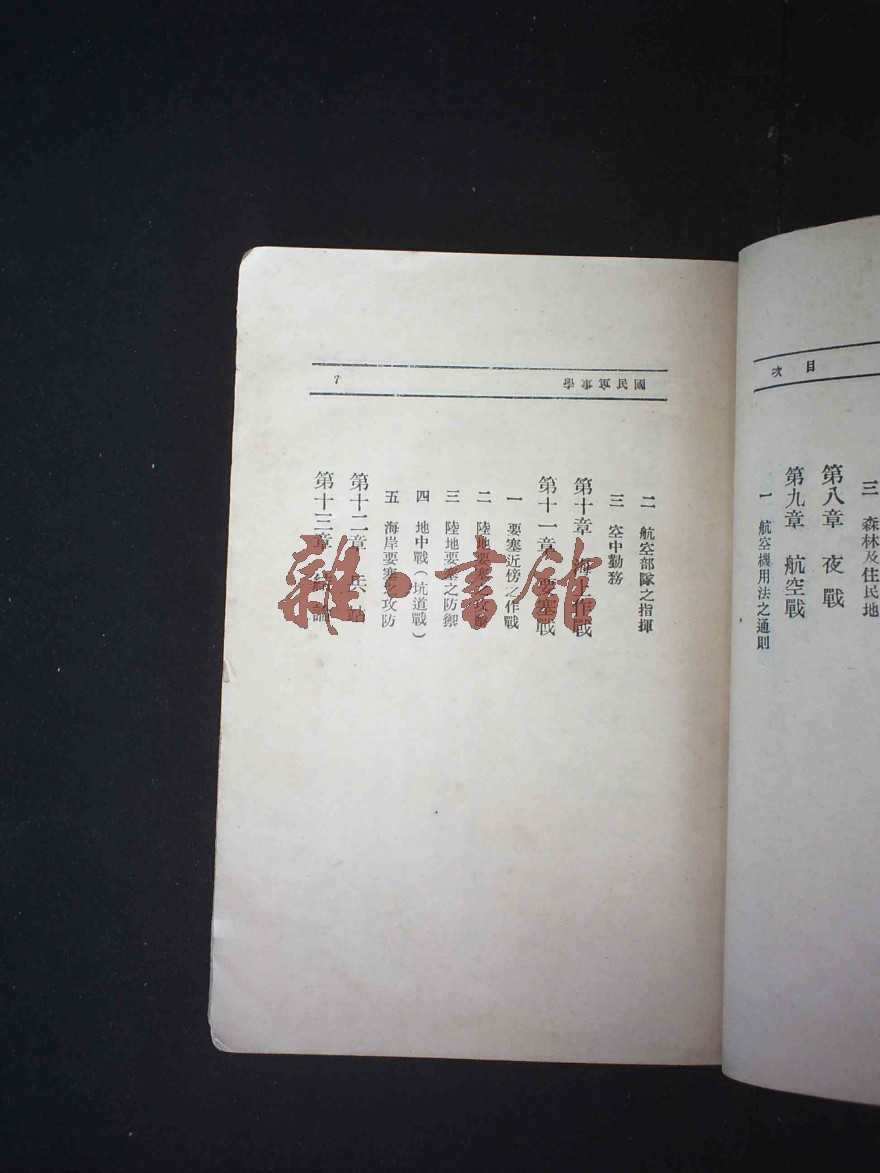 目次
三 森林及住民地
第八章 夜戰
第九章 航空戰
一 航空機用法之通則
國民軍事學
7
二 航空部隊之指揮
三 空中勤務
第十章 海上作戰
第十一章 要塞戰
一 要塞近傍之作戰
二 陸地要塞之攻
三 陸地要塞之防禦
四 地中戰(坑道戰)
五 海岸要塞之攻防
第十二章 兵站
第十三章 結論
雜·書館